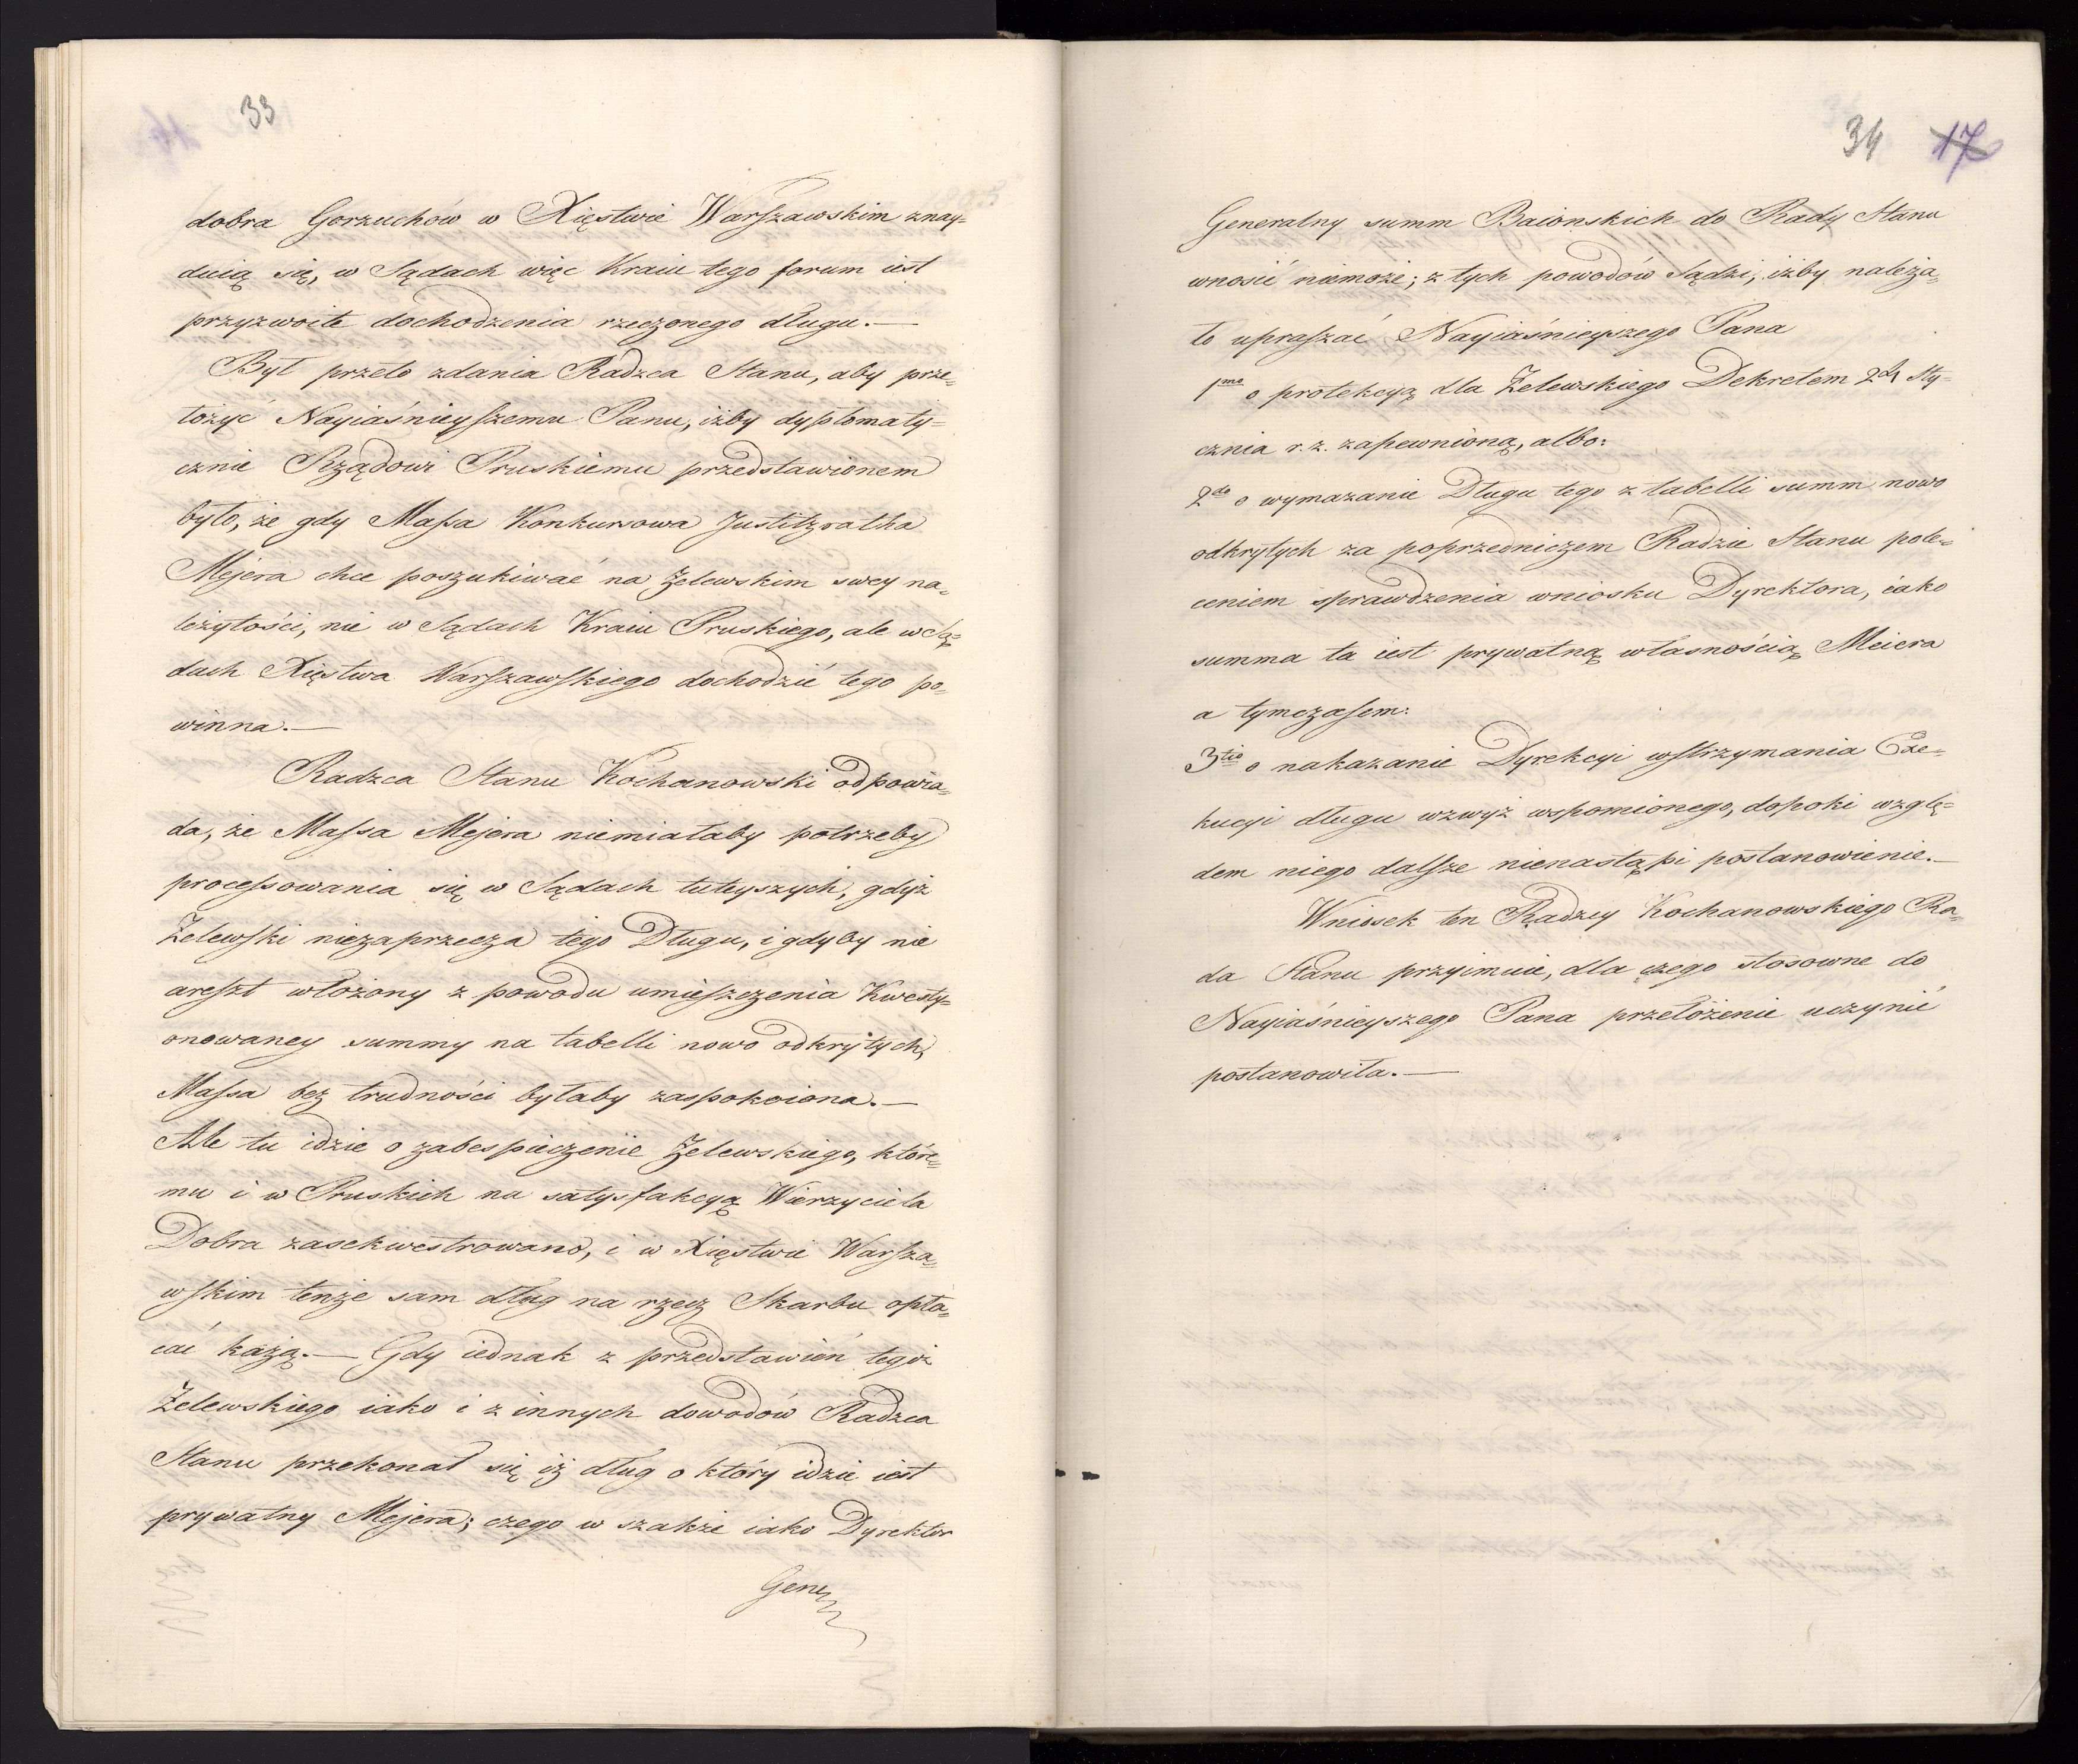 33
dobra Gorzuchów w Xięstwie Warszawskim znay=
duią się, w Sądach więc Kraiu tego forum iest
przyzwoite dochodzenia rzeczonego długu.—
Był przeto zdania Radzca Stanu, aby prze=
łożyć Nayiaśnieyszemu Panu, iżby dyplomaty=
cznie Rządowi Pruskiemu przedstawionem
było, że gdy Massa Konkursowa Justitzratha
Mejera chce poszukiwać na Żelewskim swey na=
leżytości, nie w Sądach Kraiu Pruskiego, ale w Są=
dach Xięstwa Warszawskiego dochodzić tego po=
winna.—
Radzca Stanu Kochanowski odpowia=
da, że Massa Mejera niemiałaby potrzeby
processowania się w Sądach tuteyszych, gdyż
Żelewski niezaprzecza tego Długu, i gdyby nie
areszt włożony z powodu umieszczenia Kwesty=
onowaney summy na tabelli nowo odkrytych,
Massa bez trudności byłaby zaspokoiona.—
Ale tu idzie o zabespieczenie Żelewskiego, które=
mu i w Pruskich na satysfakcyą Wierzyciela
Dobra zasekwestrowano, i w Xięstwie Warsza=
wskim tenże sam dług na rzecz Skarbu opła=
cać każą.— Gdy iednak z przedstawień tegoż
Żelewskiego iako i z innych dowodów Radzca
Stanu przekonał się iż dług o który idzie iest
prywatny Mejera; czego w szakże iako Dyrektor
Gene
34 17
Generalny summ Baionskich do Rady Stanu
wnosić niemoże; z tych powodów sądzi, iżby należa=
ło upraszać Nayiaśnieyszego Pana
1mo o protekcyą dla Żelewskiego Dekretem 24 Sty=
cznia r. z. zapewnioną, albo:
2do o wymazanie Długu tego z tabelli summ nowo
odkrytych za poprzedniczem Radzie Stanu pole=
ceniem sprawdzenia wniosku Dyrektora, iako
summa ta iest prywatną własnością Meiera
a tymczasem:
3tio o nakazanie Dyrekcyi wstrzymania Exe=
kucyi długu wzwyż wspomionego, dopoki wzglę=
dem niego dalsze nienastąpi postanowienie.—
Wniosek ten Radzcy Kochanowskiego Ra=
da Stanu przyimuie, dla czego stosowne do
Nayiaśnieyszego Pana przełożenie uczynić
postanowiła.—